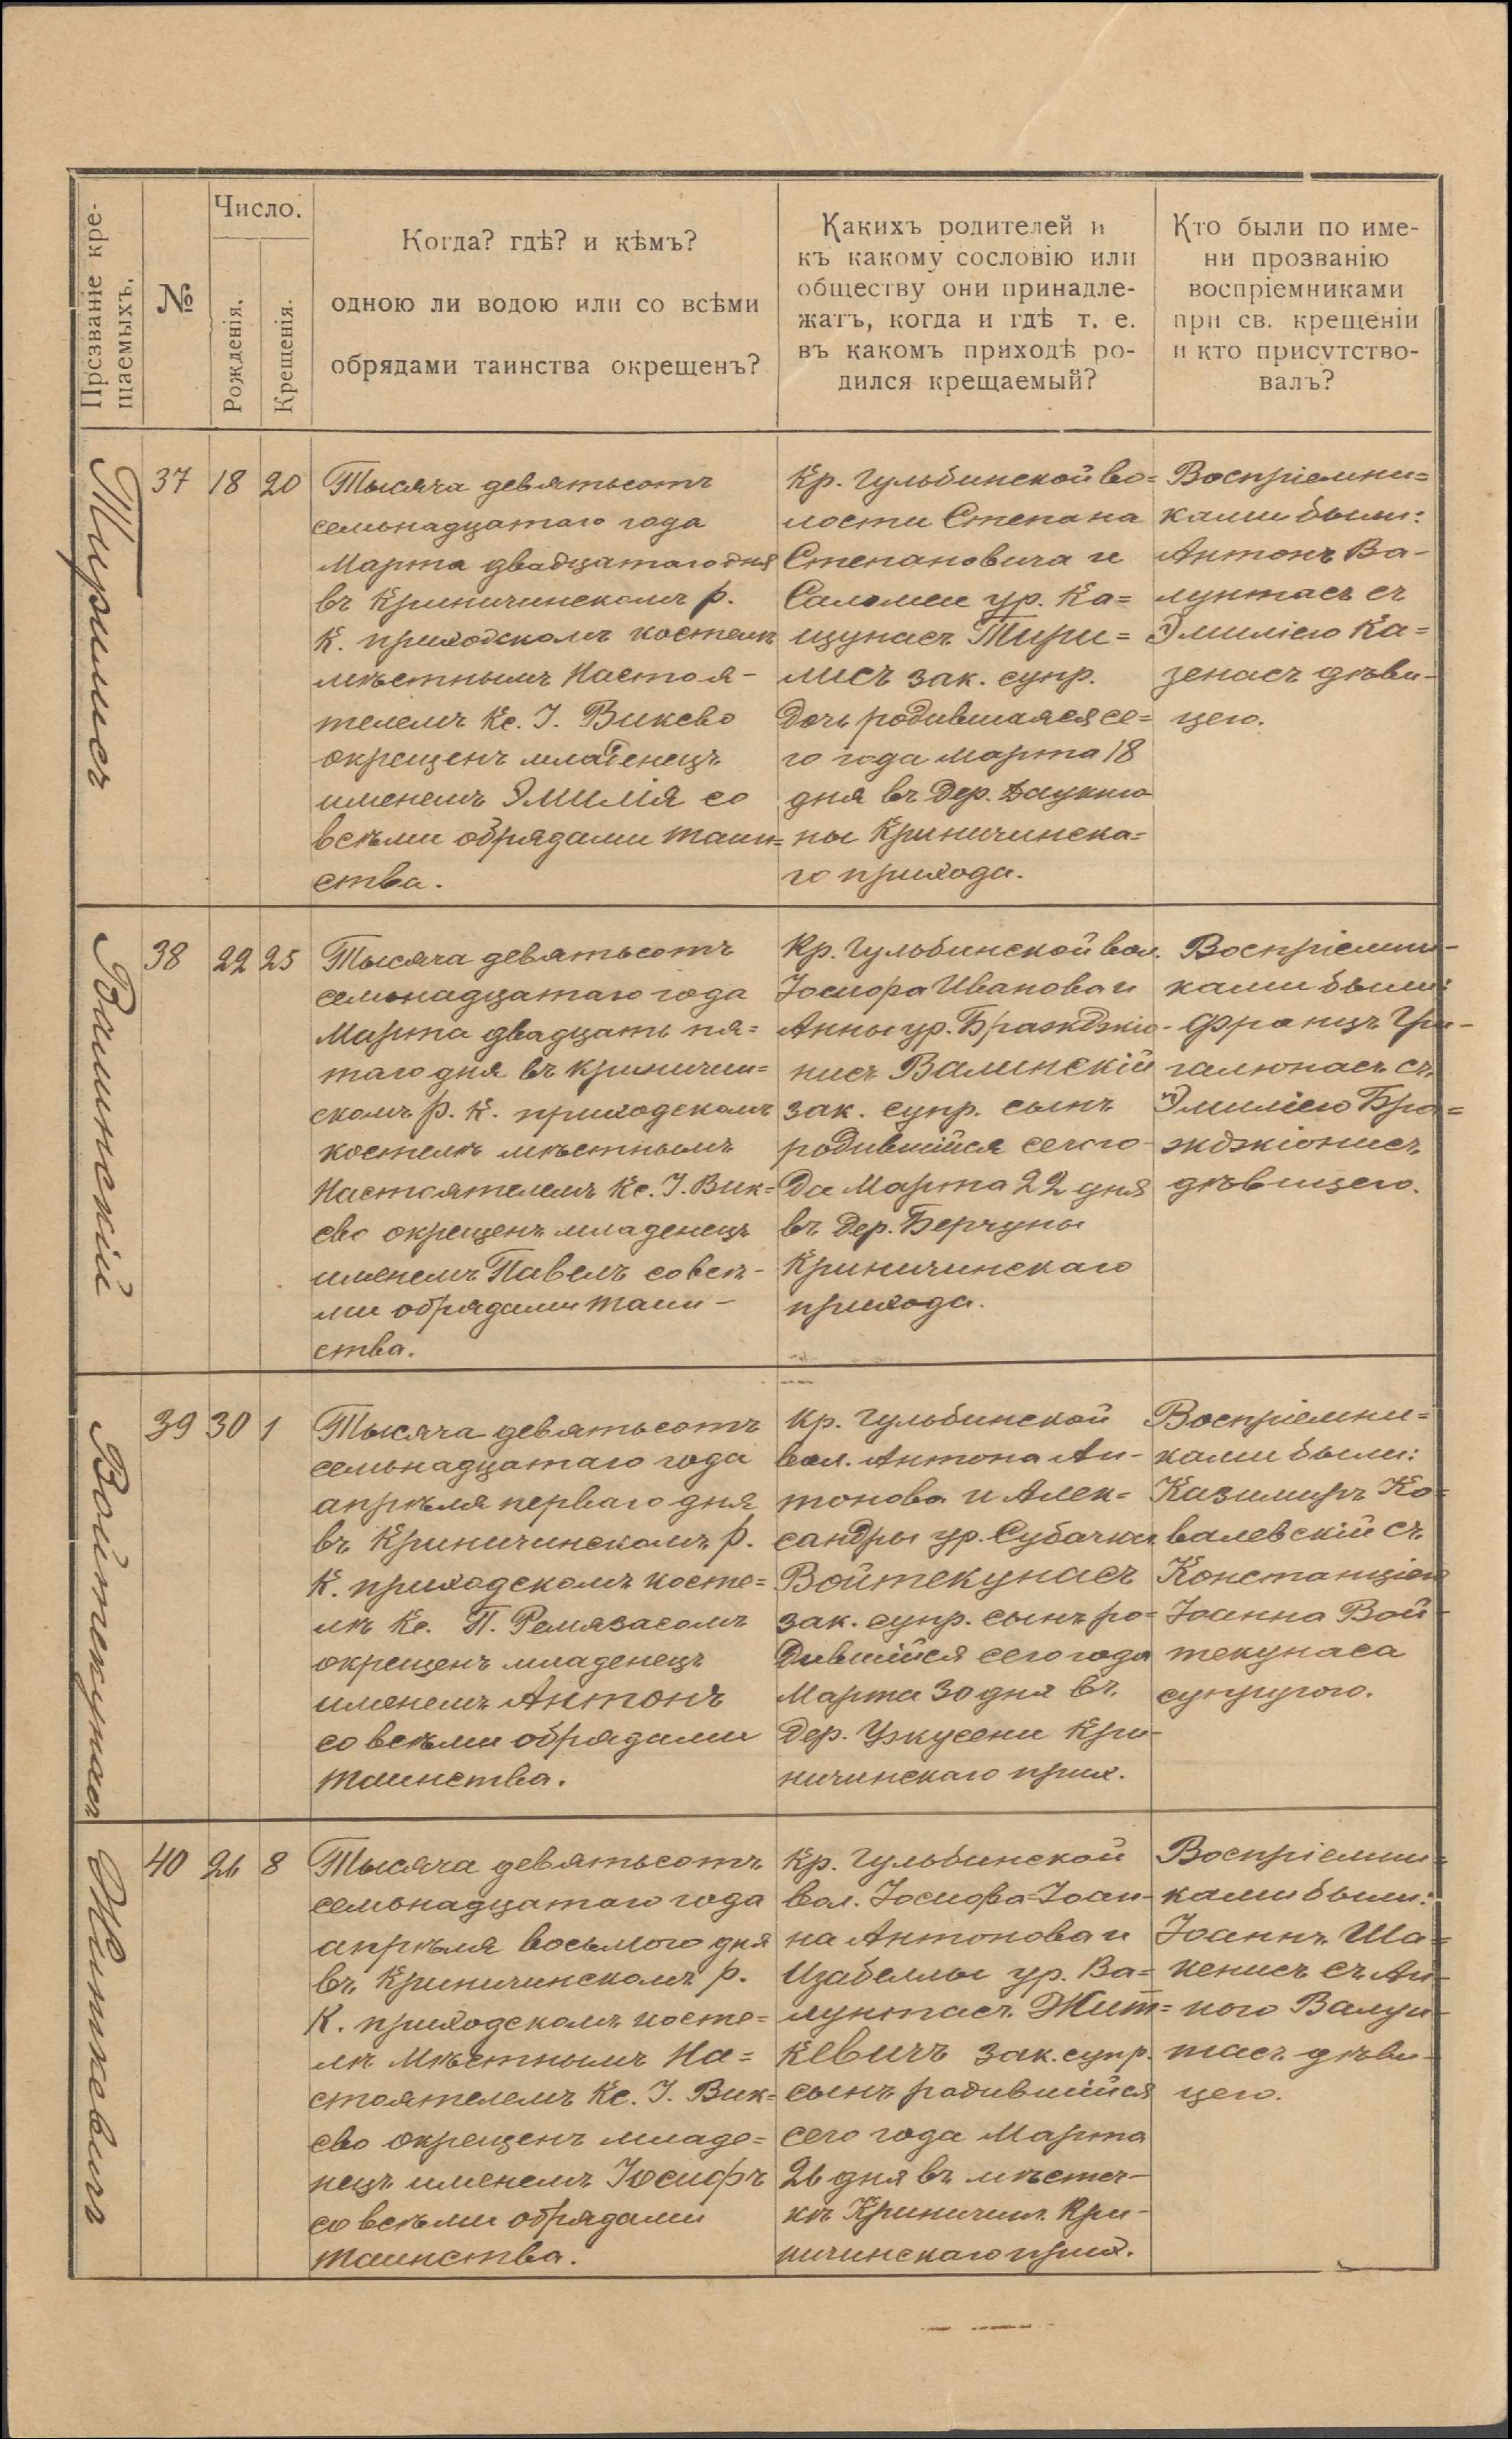 Прозваніе кре-
щаемыхъ.
№
Число.
Рожденія.
Крещенія.
Когда? гдѣ? и кѣмъ?
одною ли водою или со всѣми
обрядами таинства окрещенъ?
Какихъ родителей и
къ какому сословію или
обществу они принадле-
жатъ, когда и гдѣ т. е.
въ какомъ приходѣ ро-
дился крещаемый?
Кто были по име-
ни прозванію
воспріемниками
при св. крещеніи
и кто присутство-
валъ?
Тирилисъ
37
18
20
Тысяча девятьсотъ
семьнадцатаго года
Марта двадцатаго дня
въ Криничинскомъ р.
К. приходскомъ костелѣ
мѣстнымъ Настоя-
телемъ Кс. І. Виксво
окрещенъ младенецъ
именемъ Эмилія со
всѣми обрядами таин=
ства.
Кр. Гульбинской во=
лости Степана
Степановича и
Саломеи ур. Ка=
щунасъ Тири=
лисъ зак. супр.
дочь родившаяся се=
го года марта 18
дня въ дер. Даукшо
ны Криничинска=
го прихода.
Воспріемни=
ками были:
Антонъ Ва-
лунтасъ съ
Эмиліею Ка=
зенасъ дѣви-
цею.
Валинскій
38
22
25
Тысяча девятьсотъ
семьнадцатаго года
Марта двадцать пя=
таго дня въ Криничин=
скомъ р. К. приходскомъ
костелѣ мѣстнымъ
Настоятелемъ Кс. І. Вик=
сво окрещенъ младенецъ
именемъ Павелъ со всѣ-
ми обрядами таин-
ства.
Кр. Гульбинской вол.
Іосифа Иванова и
Анны ур. Бражджіо-
нисъ Валинскій
зак. супр. сынъ
родившійся сего го-
да Марта 22 дня
въ дер. Берчуны
Криничинскаго
прихода.
Воспріемни-
ками были:
Францъ Гри-
галюнасъ съ
Эмиліею Бра=
жджіонисъ
дѣвицею.
Войтекунасъ
39
30
1
Тысяча девятьсотъ
семьнадцатаго года
апрѣля перваго дня
въ Криничинскомъ р.
К. приходскомъ косте=
лѣ Кс. П. Ремязасомъ
окрещенъ младенецъ
именемъ Антонъ
со всѣми обрядами
таинства.
Кр. Гульбинской
вол. Антона Ан-
тонова и Алек=
сандры ур. Субачюс
Войтекунасъ
зак. супр. сынъ ро=
дившійся сего года
Марта 30 дня въ
дер. Ужусени Кри-
ничинскаго прих.
Воспріемни=
ками были:
Казимиръ Ко=
валевскій съ
Констанціею
Іоанна Вой-
текунаса
супругою.
Житкевичъ
40
26
8
Тысяча девятьсотъ
семьнадцатаго года
апрѣля восьмого дня
въ Криничинскомъ р.
К. приходскомъ косте=
лѣ Мѣстнымъ На=
стоятелемъ Кс. І. Вик=
сво окрещенъ младе=
нецъ именемъ Іосифъ
со всѣми обрядами
таинства.
Кр. Гульбинской
вол. Іосифа=Іоан-
на Антонова и
Изабеллы ур. Ва=
лунтасъ Жит=
кевичъ зак. супр.
сынъ родившійся
сего года Марта
26 дня въ мѣстеч-
кѣ Криничин. Кри-
ничинскаго прих.
Воспріемни=
ками были:
Іоаннъ Ша=
кенисъ съ Ан-
ною Валун-
тасъ дѣви-
цею.